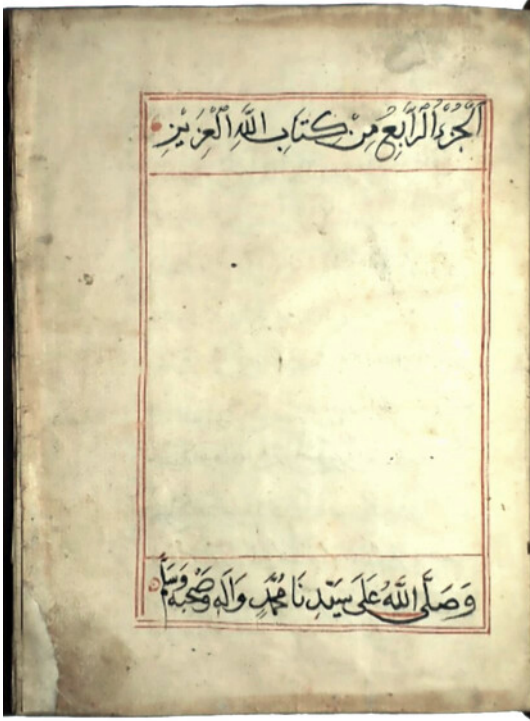 اَلْجُزْءُ الرَّابِعُ مِنْ كِتَابِ اللَّهِ الْعَزِيزِ
وَصَلَّى اللَّهُ عَلَى سَيِّدِنَا مُحَمَّدٍ وَآلِهِ وَصَحْبِهِ وَسَلَّمَ